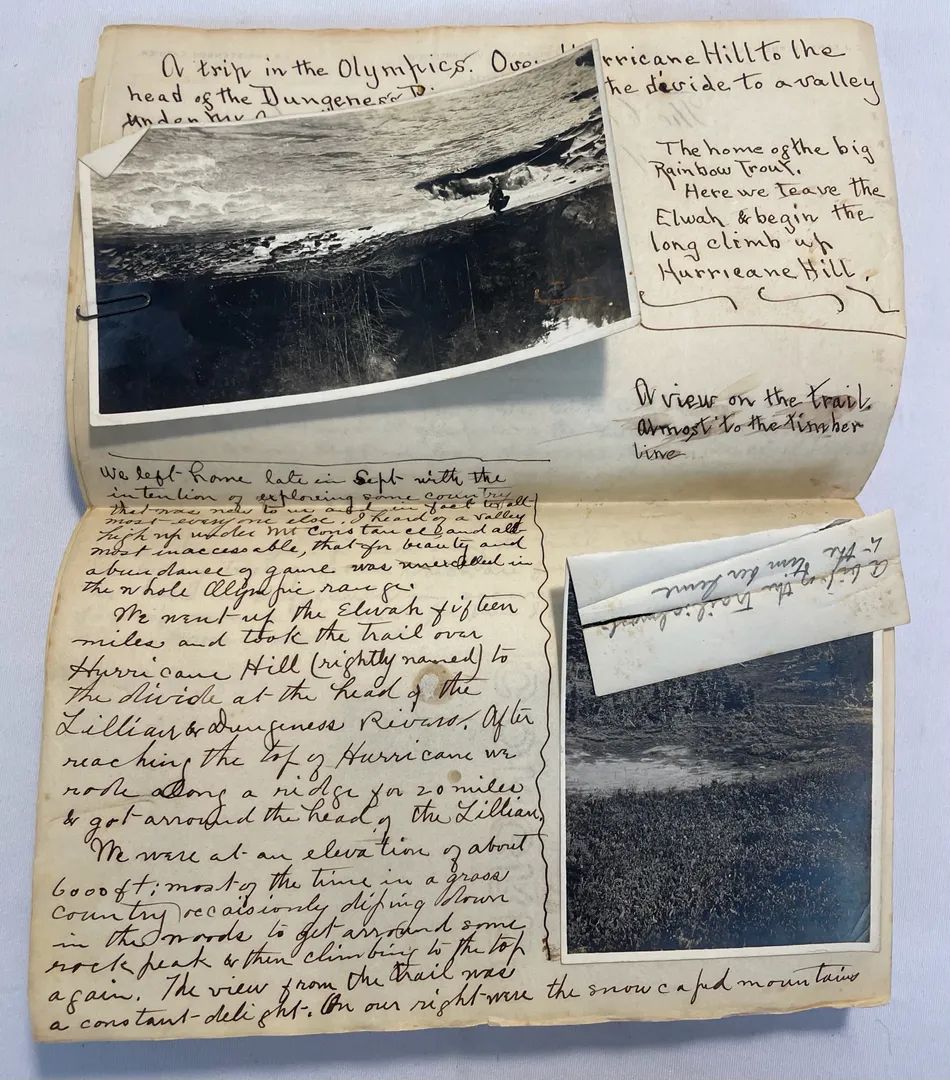 A trip in the Olympics. Over Hurricane Hill to the
head of the Dungeness the divide to a valley
under Mt
The home of the big
Rainbow Trout.
Here we leave the
Elwah & begin the
long climb up
Hurricane Hill.
A view on the trail
almost to the timber
line
We left home late in Sept with the
intention of exploreing some country
that was new to us and in fact to
most every one else. I heard of a valley
high up under Mt Constance and all
most inaccessable, that for beauty and
abundance of game was unexcelled in
the whole Olympic range.
We went up the Elwah fifteen
miles and took the trail over
Hurricane Hill (rightly named) to
the divide at the head of the
Lillian & Dungness Rivers. After
reaching the top of Hurricane we
rode along a ridge for 20 miles
& got arround the head of the Lillian.
We were at an elevation of about
6000 ft; most of the time in a grass
country occaisionly diping down
in the woods to get arround some
rock peak & then climbing to the top
again. The view from the trail was
a constant delight. On our right were the snow caped mountains
A bit of the trail almost
to the timber line